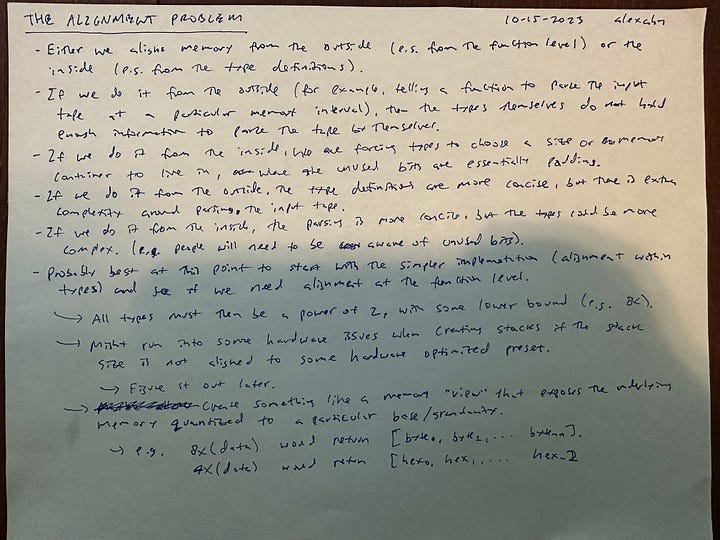 THE ALIGNMENT PROBLEM 10-15-2023 alexahn
- Either we align memory from the outside (e.g. from the function level) or the
inside (e.g. from the type definitions).
- If we do it from the outside (for example, telling a function to parse the input
tape at a particular memory interval), then the types themselves do not hold
enough information to parse the tape by themselves.
- If we do it from the inside, we are forcing types to choose a size or memory
container to live in, where the unused bits are essentially padding.
- If we do it from the outside, the type definitions are more concise, but there is extra
complexity around parsing the input tape.
- If we do it from the inside, the parsing is more concise, but the types could be more
complex. (e.g. people will need to be aware of unused bits).
- Probably best at this point to start with the simpler implementation (alignment within
types) and see if we need alignment at the function level.
→ All types must then be a power of 2, with some lower bound (e.g. 8x).
→ Might run into some hardware issues when creating stacks if the stack
size is not aligned to some hardware optimized preset.
→ Figure it out later.
→ Create something like a memory "view" that exposes the underlying
memory quantized to a particular base/granularity.
→ e.g. 8x(data) would return [byte0, byte1, ... byten].
4x(data) would return [hex0, hex1, ... hex